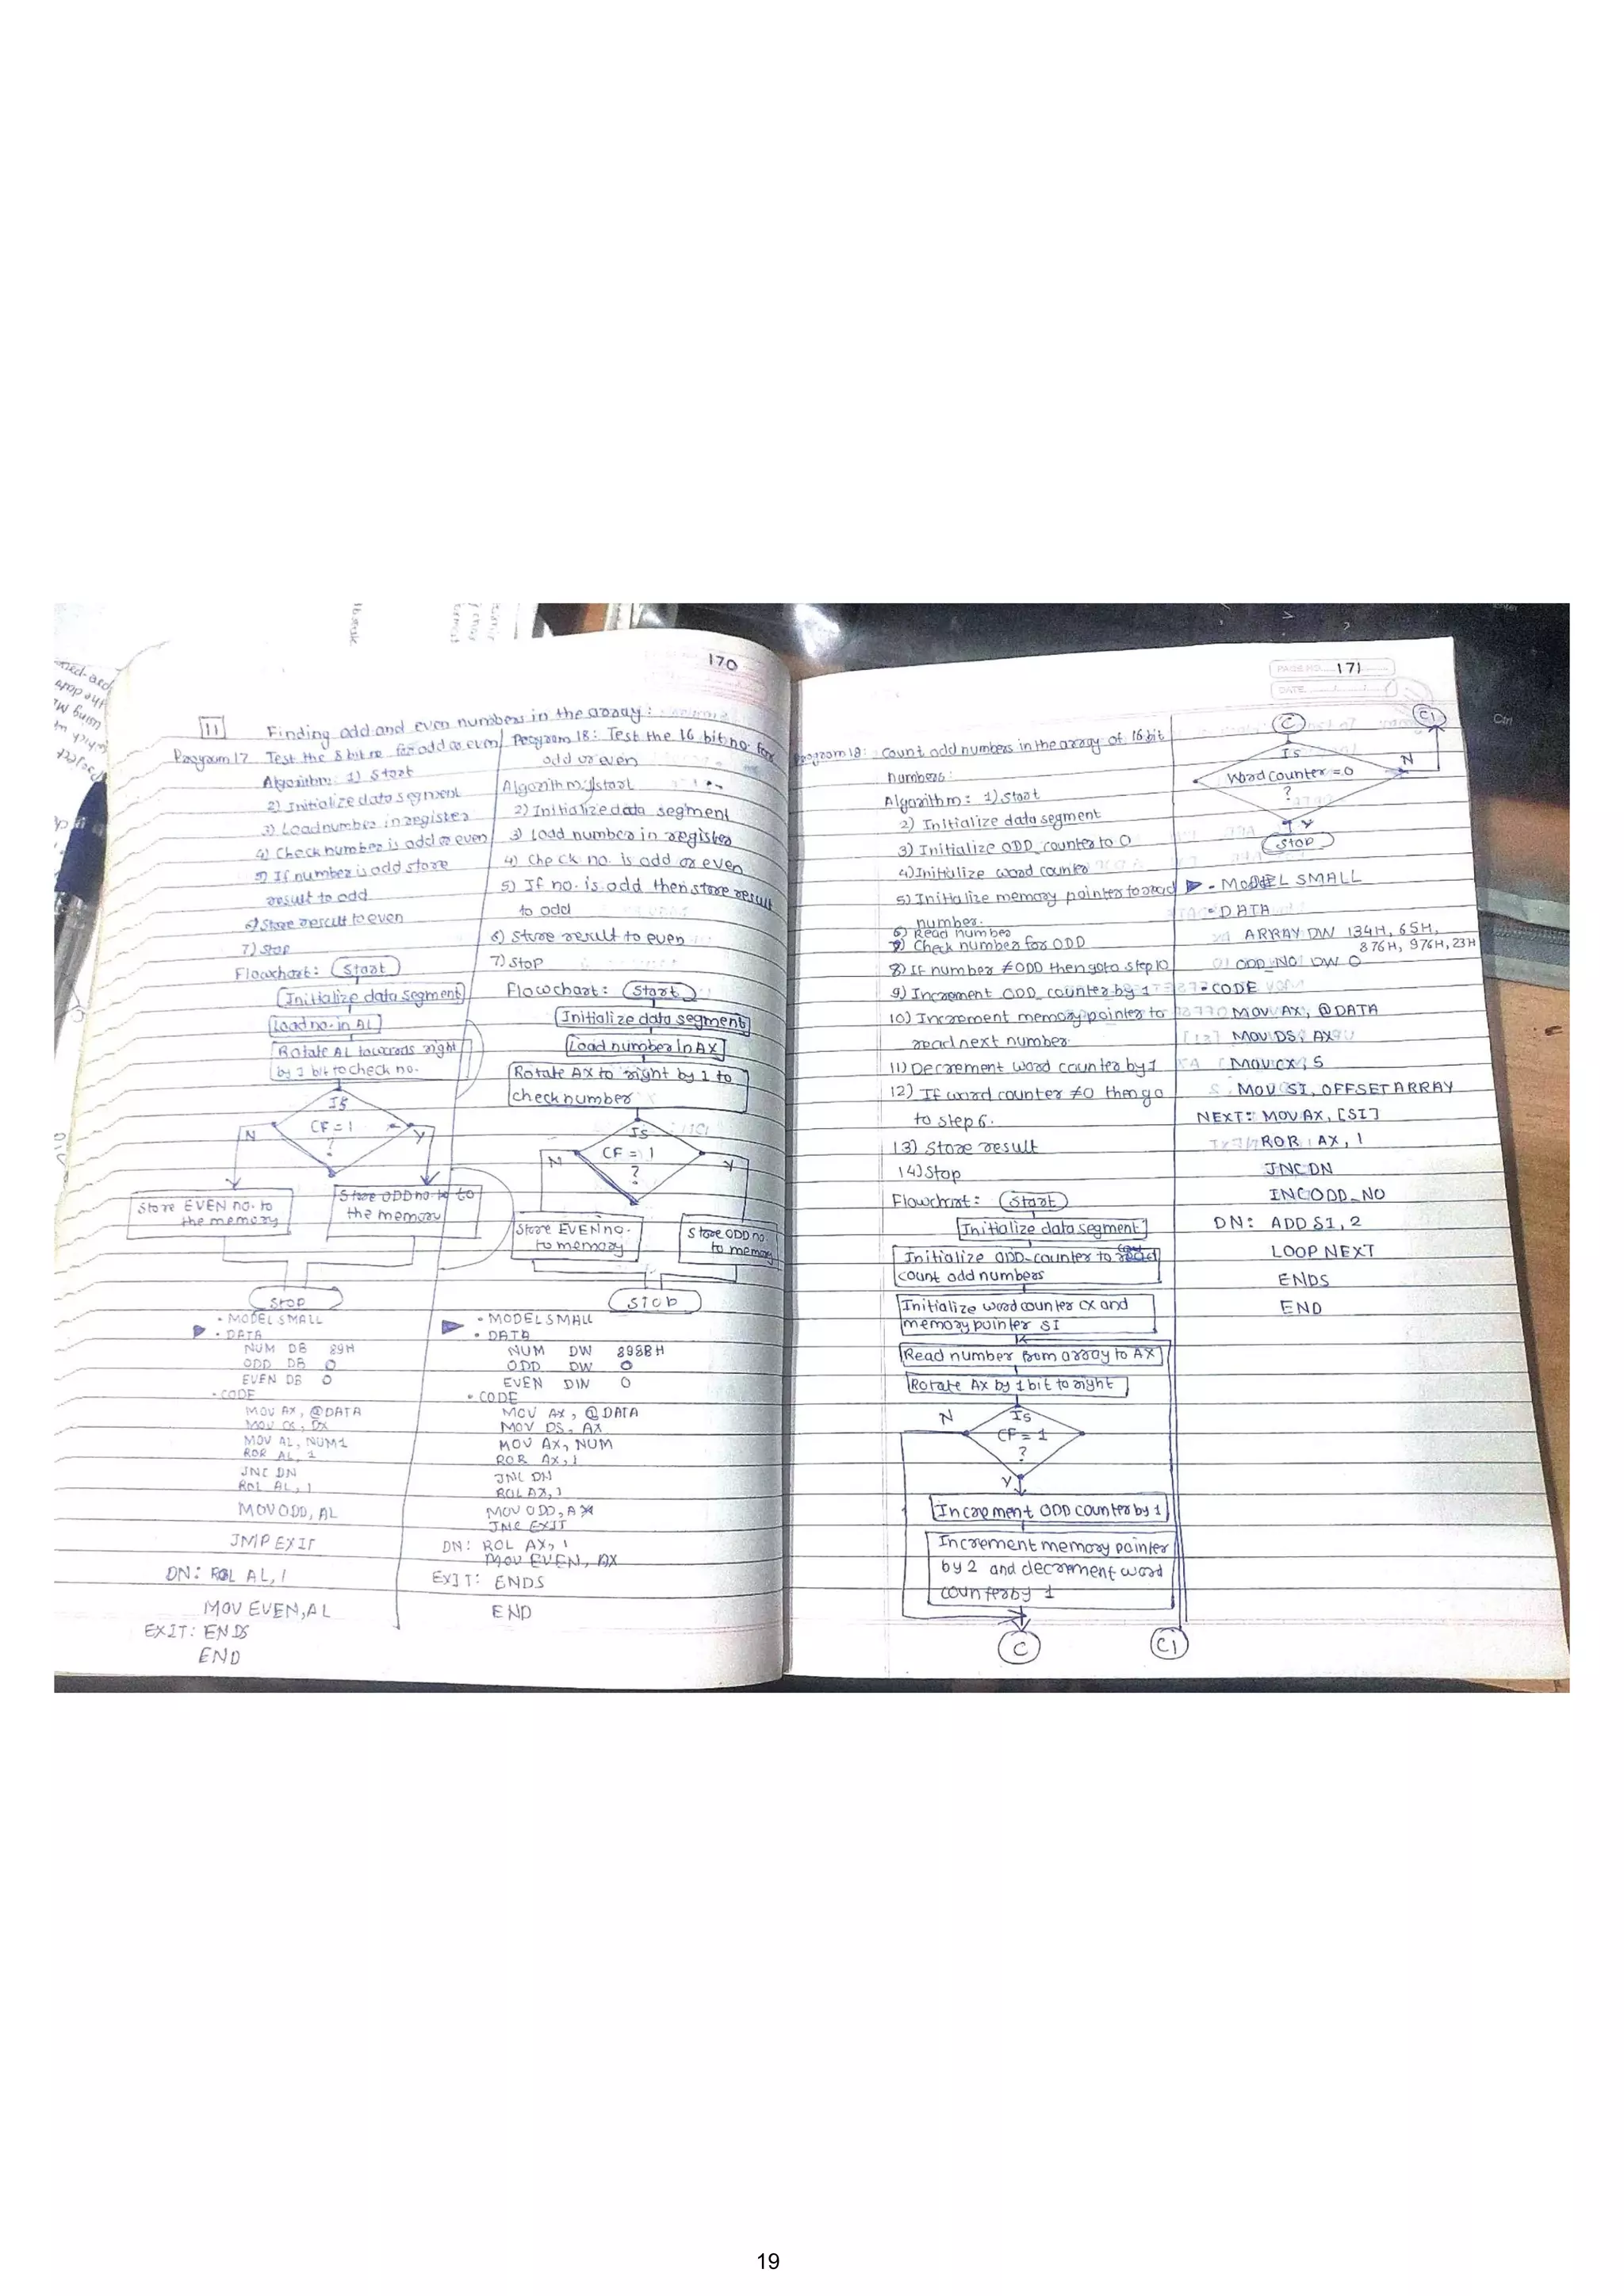 170
11 Finding odd and even numbers in the array:
Program 17 Test the 8 bit no for odd or even
Algorithm: 1) Start
2) Initialize data segment
3) Load number in register
4) Check number is odd or even
5) If number is odd store
result to odd
6) Store result to even
7) Stop
Flowchart: Start
Initialize data segment
Load no. in AL
Rotate AL towards right
by 1 bit to check no.
Is
CF = 1
?
N
Y
Store EVEN no. to
the memory
Store ODD no to
the memory
Stop
.MODEL SMALL
.DATA
NUM DB 89H
ODD DB 0
EVEN DB 0
.CODE
MOV AX, @DATA
MOV AL, NUM1
ROR AL, 1
JNC DN
ROL AL, 1
MOV ODD, AL
JMP EXIT
DN: ROL AL, 1
MOV EVEN, AL
EXIT: ENDS
END
Program 18: Test the 16 bit no. for
odd or even
Algorithm: 1) start
2) Initialize data segment
3) load number in register
4) check no. is odd or even
5) If no. is odd then store result
to odd
6) Store result to even
7) Stop
Flowchart: Start
Initialize data segment
Load number In AX
Rotate AX to right by 1 to
check number
Is
CF = 1
?
N
Y
Store EVEN no.
to memory
Store ODD no.
to memory
Stop
.MODEL SMALL
.DATA
NUM DW 898BH
ODD DW 0
EVEN DW 0
.CODE
MOV AX, @DATA
MOV DS, AX
MOV AX, NUM
ROR AX, 1
JNC DN
ROL AX, 1
MOV ODD, AX
EXIT
DN: ROL AX, 1
MOV EVEN, AX
EXIT: ENDS
END
PAGE NO. 171
DATE
Program 19: Count odd numbers in the array of 16 bit
numbers:
Algorithm: 1) Start
2) Initialize data segment
3) Initialize ODD_counter to 0
4) Initialize word counter
5) Initialize memory pointer to read
number.
6) Read number
7) Check number for ODD
8) If number ≠ ODD then goto step 10
9) Increment ODD_counter by 1
10) Increment memory pointer to
read next number
11) Decrement word counter by 1
12) If word counter ≠0 then go
to step 6.
13) Store result
14) Stop
Flowchart: Start
Initialize data segment
Initialize ODD-counter to
count odd numbers
Initialize word counter CX and
memory pointer SI
Read number from array to AX
Rotate AX by 1 bit to right
N
Is
CF = 1
?
Y
Increment ODD counter by 1
Increment memory pointer
by 2 and decrement word
counter by 1
C
C1
C
C1
Is
Word Counter = 0
?
N
Y
Stop
.MODEL SMALL
.DATA
ARRAY DW 134H, 65H,
876H, 976H, 23H
ODD_NO DW 0
.CODE
MOV AX, @DATA
MOV DS, AX
MOV CX, 5
MOV SI, OFFSET ARRAY
NEXT: MOV AX, [SI]
ROR AX, 1
JNC DN
INC ODD_NO
DN: ADD SI, 2
LOOP NEXT
ENDS
END
Ctrl
19